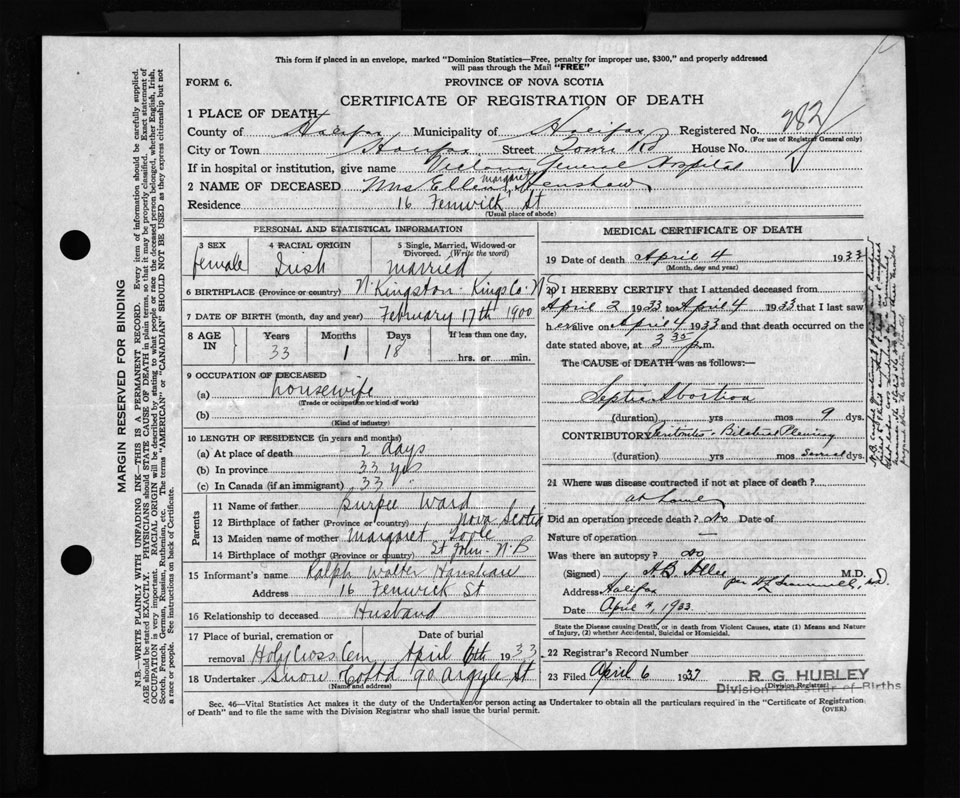 This form if placed in an envelope, marked "Dominion Statistics—Free, penalty for improper use, $300," and properly addressed
will pass through the Mail "FREE"
FORM 6.
PROVINCE OF NOVA SCOTIA
CERTIFICATE OF REGISTRATION OF DEATH
1 PLACE OF DEATH
County of Halifax Municipality of Halifax Registered No. 282
(For use of Registrar General only)
City or Town Halifax Street Tower Rd House No.
If in hospital or institution, give name Victoria General Hospital
2 NAME OF DECEASED Mrs Ellen Margaret Henshaw
Residence 16 Fenwick St
(Usual place of abode)
PERSONAL AND STATISTICAL INFORMATION
3 SEX
female
4 RACIAL ORIGIN
Irish
5 Single, Married, Widowed or Divorced. (Write the word)
married
6 BIRTHPLACE (Province or country) N. Kingston - Kings Co. N.S
7 DATE OF BIRTH (month, day and year) February 17th 1900
8 AGE IN
Years Months Days If less than one day,
33 1 18 hrs. or min.
9 OCCUPATION OF DECEASED
(a) housewife
(Trade or occupation or kind of work)
(b)
(Kind of industry)
10 LENGTH OF RESIDENCE (in years and months)
(a) At place of death 2 days
(b) In province 33 yrs
(c) In Canada (if an immigrant) 33 "
Parents
11 Name of father Burpee Ward
12 Birthplace of father (Province or country) Nova Scotia
13 Maiden name of mother Margaret
14 Birthplace of mother (Province or country) St John - N.B
15 Informant's name Ralph Walter Henshaw
Address 16 Fenwick St
16 Relationship to deceased Husband
17 Place of burial, cremation or removal Date of burial
Holy Cross Cem April 6th 1933
18 Undertaker Snow Co Ltd 90 Argyle St
(Name and address)
MEDICAL CERTIFICATE OF DEATH
19 Date of death April 4 1933
(Month, day and year)
20 I HEREBY CERTIFY that I attended deceased from
April 2 1933 to April 4 1933 that I last saw
her alive on April 4 1933 and that death occurred on
date stated above, at 3 35 p.m.
The CAUSE OF DEATH was as follows:
Septic Abortion
(duration) yrs mos 9 dys.
CONTRIBUTORY Peritonitis - Bilateral Pleurisy
(duration) yrs mos Several dys.
21 Where was disease contracted if not at place of death?
at home
Did an operation precede death? No Date of
Nature of operation —
Was there an autopsy? No
(Signed) M.D.
Address Halifax
Date April 4, 1933
State the Disease causing Death, or in death from Violent Causes, state (1) Means and Nature of Injury, (2) whether Accidental, Suicidal or Homicidal.
22 Registrar's Record Number
23 Filed April 6 1933 R. G. HUBLEY
Division Registrar of Births
Division Registrar
Sec. 46—Vital Statistics Act makes it the duty of the Undertaker or person acting as Undertaker to obtain all the particulars required in the "Certificate of Registration
of Death" and to file the same with the Division Registrar who shall issue the burial permit.
(OVER)
MARGIN RESERVED FOR BINDING
N.B.—WRITE PLAINLY WITH UNFADING INK—THIS IS A PERMANENT RECORD. Every item of information should be carefully supplied.
AGE should be stated EXACTLY. PHYSICIANS should STATE CAUSE OF DEATH in plain terms, so that it may be properly classified. Exact statement of
OCCUPATION is very important. RACIAL ORIGIN will be described by stating to what people or race the deceased person belonged, whether English, Irish,
Scotch, French, German, Russian, Ruthenian, etc. The terms "AMERICAN" or "CANADIAN" SHOULD NOT BE USED as they express citizenship but not
a race or people. See instructions on back of Certificate.